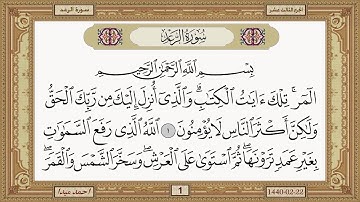 سورة الرعد
الجزء الثالث عشر
سُورَةُ الرَّعْدِ
بِسْمِ اللَّهِ الرَّحْمَٰنِ الرَّحِيمِ
الٓمٓرۚ تِلْكَ ءَايَٰتُ ٱلْكِتَٰبِۗ وَٱلَّذِىٓ أُنزِلَ إِلَيْكَ مِن رَّبِّكَ ٱلْحَقُّ
وَلَٰكِنَّ أَكْثَرَ ٱلنَّاسِ لَا يُؤْمِنُونَ ١ ٱللَّهُ ٱلَّذِى رَفَعَ ٱلسَّمَٰوَٰتِ
بِغَيْرِ عَمَدٍ تَرَوْنَهَاۖ ثُمَّ ٱسْتَوَىٰ عَلَى ٱلْعَرْشِۖ وَسَخَّرَ ٱلشَّمْسَ وَٱلْقَمَرَۖ
1
1440-02-22